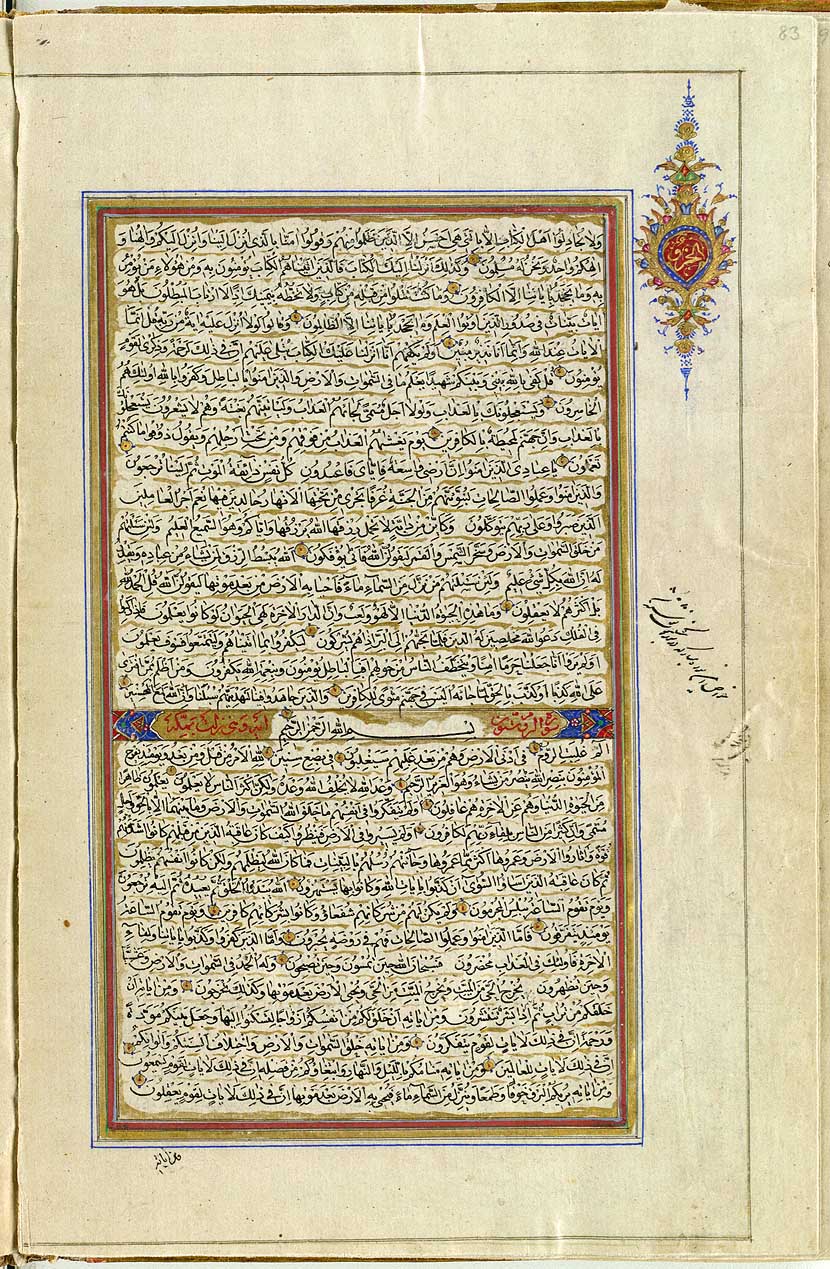 ولا تجادلوا اهل الكتاب الا بالتي هي احسن الا الذين ظلموا منهم وقولوا امنا بالذي انزل الينا وانزل اليكم والهنا و
الهكم واحد ونحن له مسلمون وكذلك انزلنا اليك الكتاب فالذين اتيناهم الكتاب يؤمنون به ومن هؤلاء من يؤمن
به وما يجحد باياتنا الا الكافرون وما كنت تتلوا من قبله من كتاب ولا تخطه بيمينك اذا لارتاب المبطلون بل هو
ايات بينات في صدور الذين اوتوا العلم وما يجحد باياتنا الا الظالمون وقالوا لولا انزل عليه اية من ربه قل انما
الايات عند الله وانما انا نذير مبين اولم يكفهم انا انزلنا عليك الكتاب يتلى عليهم ان في ذلك لرحمة وذكرى لقوم
يؤمنون قل كفى بالله بيني وبينكم شهيدا يعلم ما في السموات والارض والذين امنوا بالباطل وكفروا بالله اولئك هم
الخاسرون ويستعجلونك بالعذاب ولولا اجل مسمى لجاءهم العذاب وليأتينهم بغتة وهم لا يشعرون يستعجلونك
بالعذاب وان جهنم لمحيطة بالكافرين يوم يغشيهم العذاب من فوقهم ومن تحت ارجلهم ويقول ذوقوا ما كنتم
تعملون يا عبادي الذين امنوا ان ارضي واسعة فاياي فاعبدون كل نفس ذائقة الموت ثم الينا ترجعون
والذين امنوا وعملوا الصالحات لنبوئنهم من الجنة غرفا تجري من تحتها الانهار خالدين فيها نعم اجر العاملين
الذين صبروا وعلى ربهم يتوكلون وكاين من دابة لا تحمل رزقها الله يرزقها واياكم وهو السميع العليم ولئن سئلتهم
من خلق السموات والارض وسخر الشمس والقمر ليقولن الله فانى يؤفكون الله يبسط الرزق لمن يشاء من عباده ويقدر
له ان الله بكل شيء عليم ولئن سئلتهم من نزل من السماء ماء فاحيا به الارض من بعد موتها ليقولن الله قل الحمد لله
بل اكثرهم لا يعقلون وما هذه الحيوة الدنيا الا لهو ولعب وان الدار الاخرة لهي الحيوان لو كانوا يعلمون فاذا ركبوا
في الفلك دعوا الله مخلصين له الدين فلما نجيهم الى البر اذا هم يشركون ليكفروا بما اتيناهم وليتمتعوا فسوف يعلمون
اولم يروا انا جعلنا حرما امنا ويتخطف الناس من حولهم افبالباطل يؤمنون وبنعمة الله يكفرون ومن اظلم ممن افترى
على الله كذبا او كذب بالحق لما جاءه اليس في جهنم مثوى للكافرين والذين جاهدوا فينا لنهدينهم سبلنا وان الله لمع المحسنين
سورة الروم ستون اية وهي نزلت بمكة
بسم الله الرحمن الرحيم
الم غلبت الروم في ادنى الارض وهم من بعد غلبهم سيغلبون في بضع سنين لله الامر من قبل ومن بعد ويومئذ يفرح
المؤمنون بنصر الله ينصر من يشاء وهو العزيز الرحيم وعد الله لا يخلف الله وعده ولكن اكثر الناس لا يعلمون يعلمون ظاهرا
من الحيوة الدنيا وهم عن الاخرة هم غافلون اولم يتفكروا في انفسهم ما خلق الله السموات والارض وما بينهما الا بالحق واجل
مسمى وان كثيرا من الناس بلقاء ربهم لكافرون اولم يسيروا في الارض فينظروا كيف كان عاقبة الذين من قبلهم كانوا اشد منهم
قوة واثاروا الارض وعمروها اكثر مما عمروها وجاءتهم رسلهم بالبينات فما كان الله ليظلمهم ولكن كانوا انفسهم يظلمون
ثم كان عاقبة الذين اساؤا السوآى ان كذبوا بايات الله وكانوا بها يستهزؤن الله يبدؤا الخلق ثم يعيده ثم اليه ترجعون
ويوم تقوم الساعة يبلس المجرمون ولم يكن لهم من شركائهم شفعاء وكانوا بشركائهم كافرين ويوم تقوم الساعة
يومئذ يتفرقون فاما الذين امنوا وعملوا الصالحات فهم في روضة يحبرون واما الذين كفروا وكذبوا باياتنا ولقاء
الاخرة فاولئك في العذاب محضرون فسبحان الله حين تمسون وحين تصبحون وله الحمد في السموات والارض وعشيا
وحين تظهرون يخرج الحي من الميت ويخرج الميت من الحي ويحيي الارض بعد موتها وكذلك تخرجون ومن اياته ان
خلقكم من تراب ثم اذا انتم بشر تنتشرون ومن اياته ان خلق لكم من انفسكم ازواجا لتسكنوا اليها وجعل بينكم مودة
ورحمة ان في ذلك لايات لقوم يتفكرون ومن اياته خلق السموات والارض واختلاف السنتكم والوانكم
ان في ذلك لايات للعالمين ومن اياته منامكم بالليل والنهار وابتغاؤكم من فضله ان في ذلك لايات لقوم يسمعون
ومن اياته يريكم البرق خوفا وطمعا وينزل من السماء ماء فيحيي به الارض بعد موتها ان في ذلك لايات لقوم يعقلون
ومن اياته
83